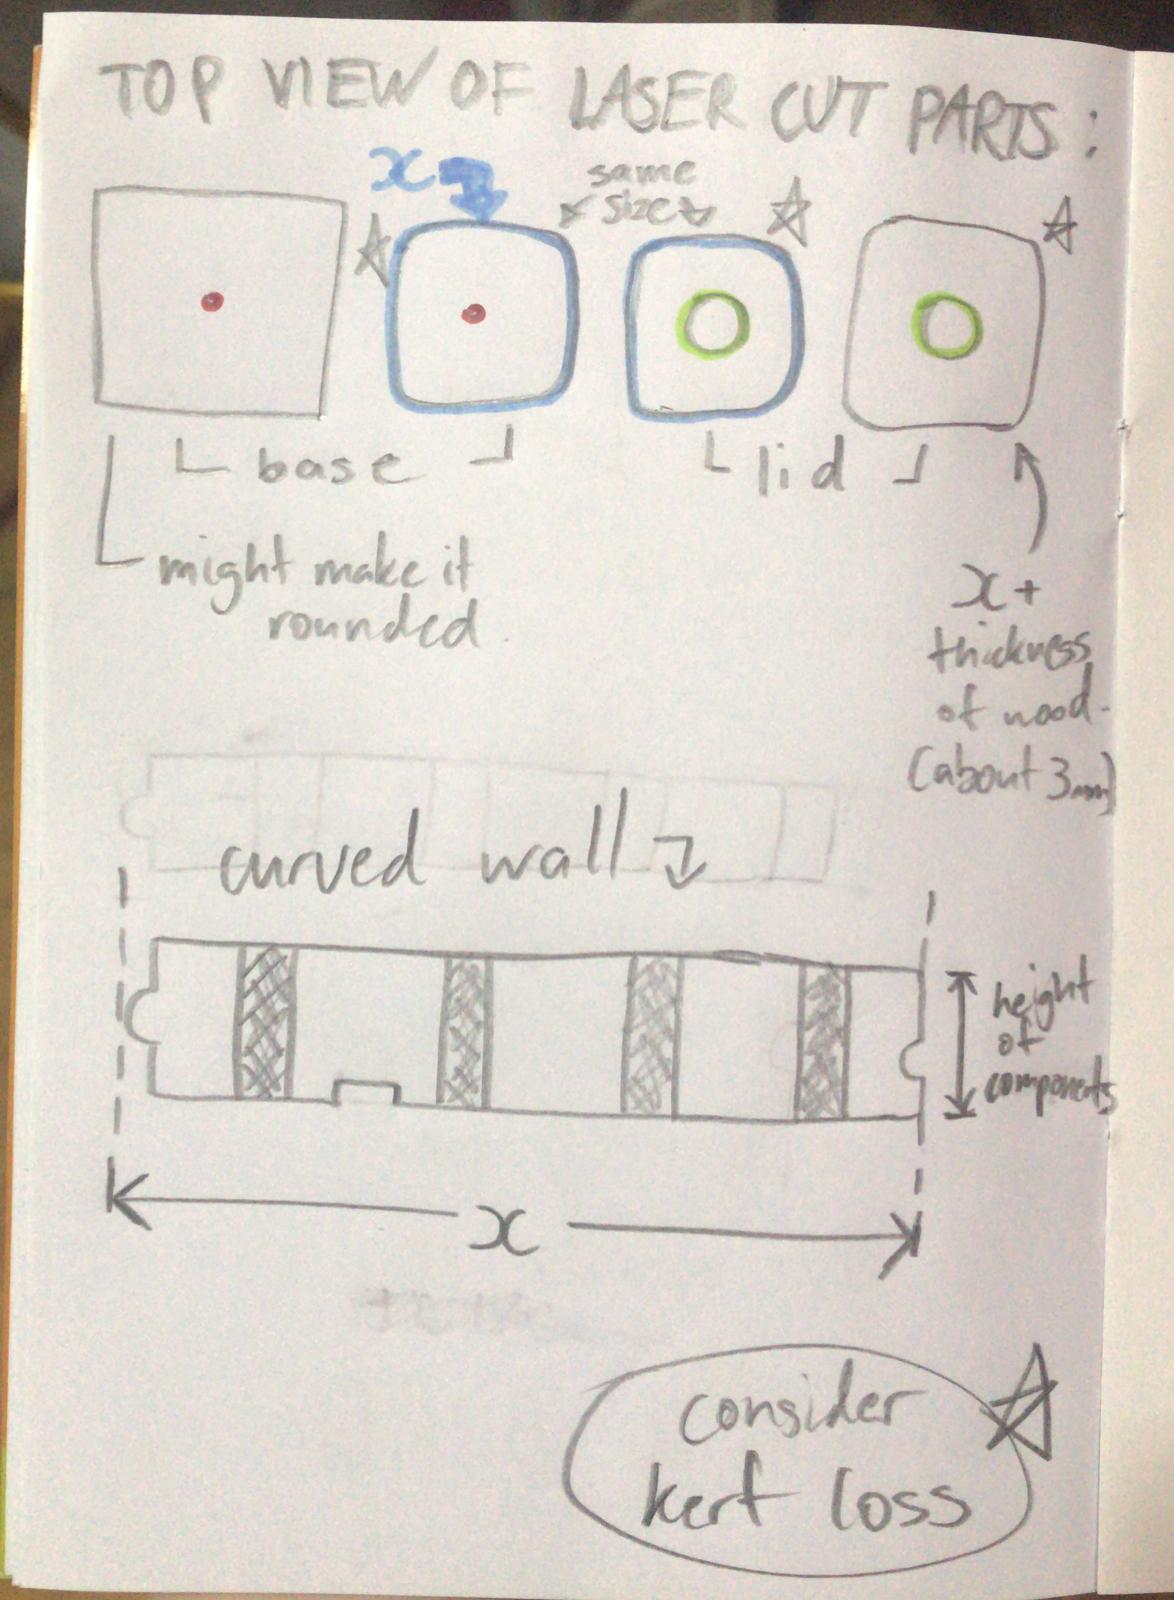 TOP VIEW OF LASER CUT PARTS:
x
same
size
base
lid
might make it
rounded.
x +
thickness
of wood.
(about 3mm)
curved wall
height
of
components
x
consider
kerf loss